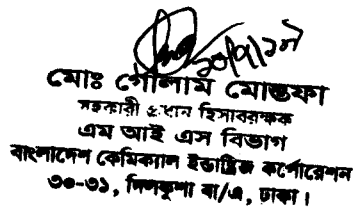 ২০/৭/১৭
মোঃ গোলাম মোস্তফা
সহকারী প্রধান হিসাবরক্ষক
এম আই এস বিভাগ
বাংলাদেশ কেমিক্যাল ইন্ডাষ্ট্রিজ কর্পোরেশন
৩০-৩১, দিলকুশা বা/এ, ঢাকা।